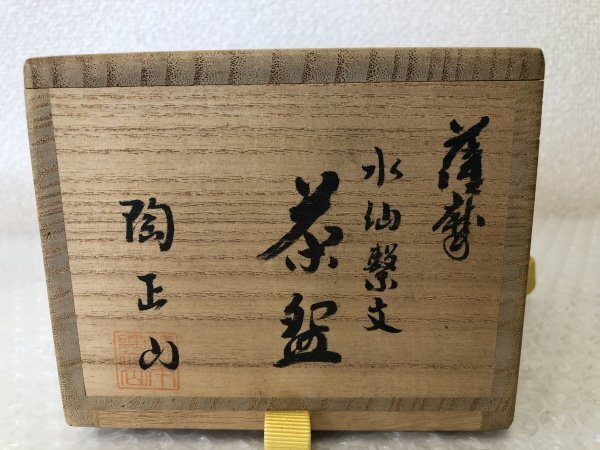 薩摩
水仙繋文
茶盌
陶正山